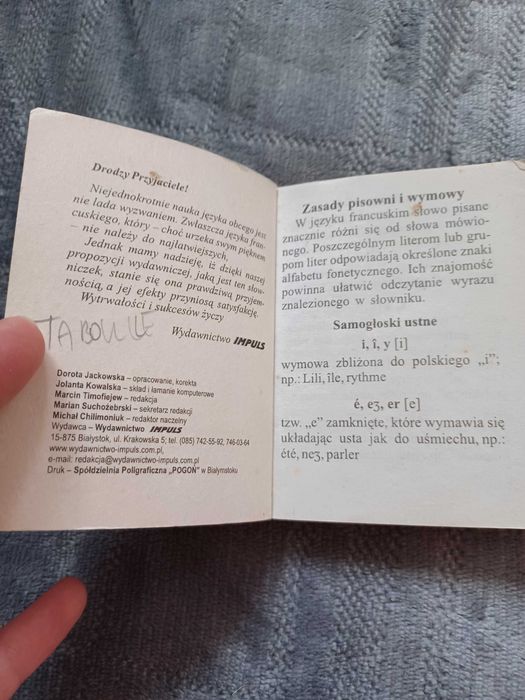 Drodzy Przyjaciele!
Niejednokrotnie nauka języka obcego jest
nie lada wyzwaniem. Zwłaszcza języka fran-
cuskiego, który – choć urzeka swym pięknem
– nie należy do najłatwiejszych.
Jednak mamy nadzieję, iż dzięki naszej
propozycji wydawniczej, jaką jest ten słow-
niczek, stanie się ona prawdziwą przyjem-
nością, a jej efekty przyniosą satysfakcję.
Wytrwałości i sukcesów życzy
Wydawnictwo IMPULS
TABOULE
Dorota Jackowska – opracowanie, korekta
Jolanta Kowalska – skład i łamanie komputerowe
Marcin Timofiejew – redakcja
Marian Suchożebrski – sekretarz redakcji
Michał Chilimoniuk – redaktor naczelny
Wydawca – Wydawnictwo IMPULS
15-875 Białystok, ul. Krakowska 5; tel. (085) 742-55-92, 746-03-64
www.wydawnictwo-impuls.com.pl
e-mail: redakcja@wydawnictwo-impuls.com.pl
Druk – Spółdzielnia Poligraficzna „POGOŃ" w Białymstoku
Zasady pisowni i wymowy
W języku francuskim słowo pisane
znacznie różni się od słowa mówio-
nego. Poszczególnym literom lub gru-
pom liter odpowiadają określone znaki
alfabetu fonetycznego. Ich znajomość
powinna ułatwić odczytanie wyrazu
znalezionego w słowniku.
Samogłoski ustne
i, î, y [i]
wymowa zbliżona do polskiego „i";
np.: Lili, île, rythme
é, eʒ, er [e]
tzw. „e" zamknięte, które wymawia się
układając usta jak do uśmiechu, np.:
été, neʒ, parler